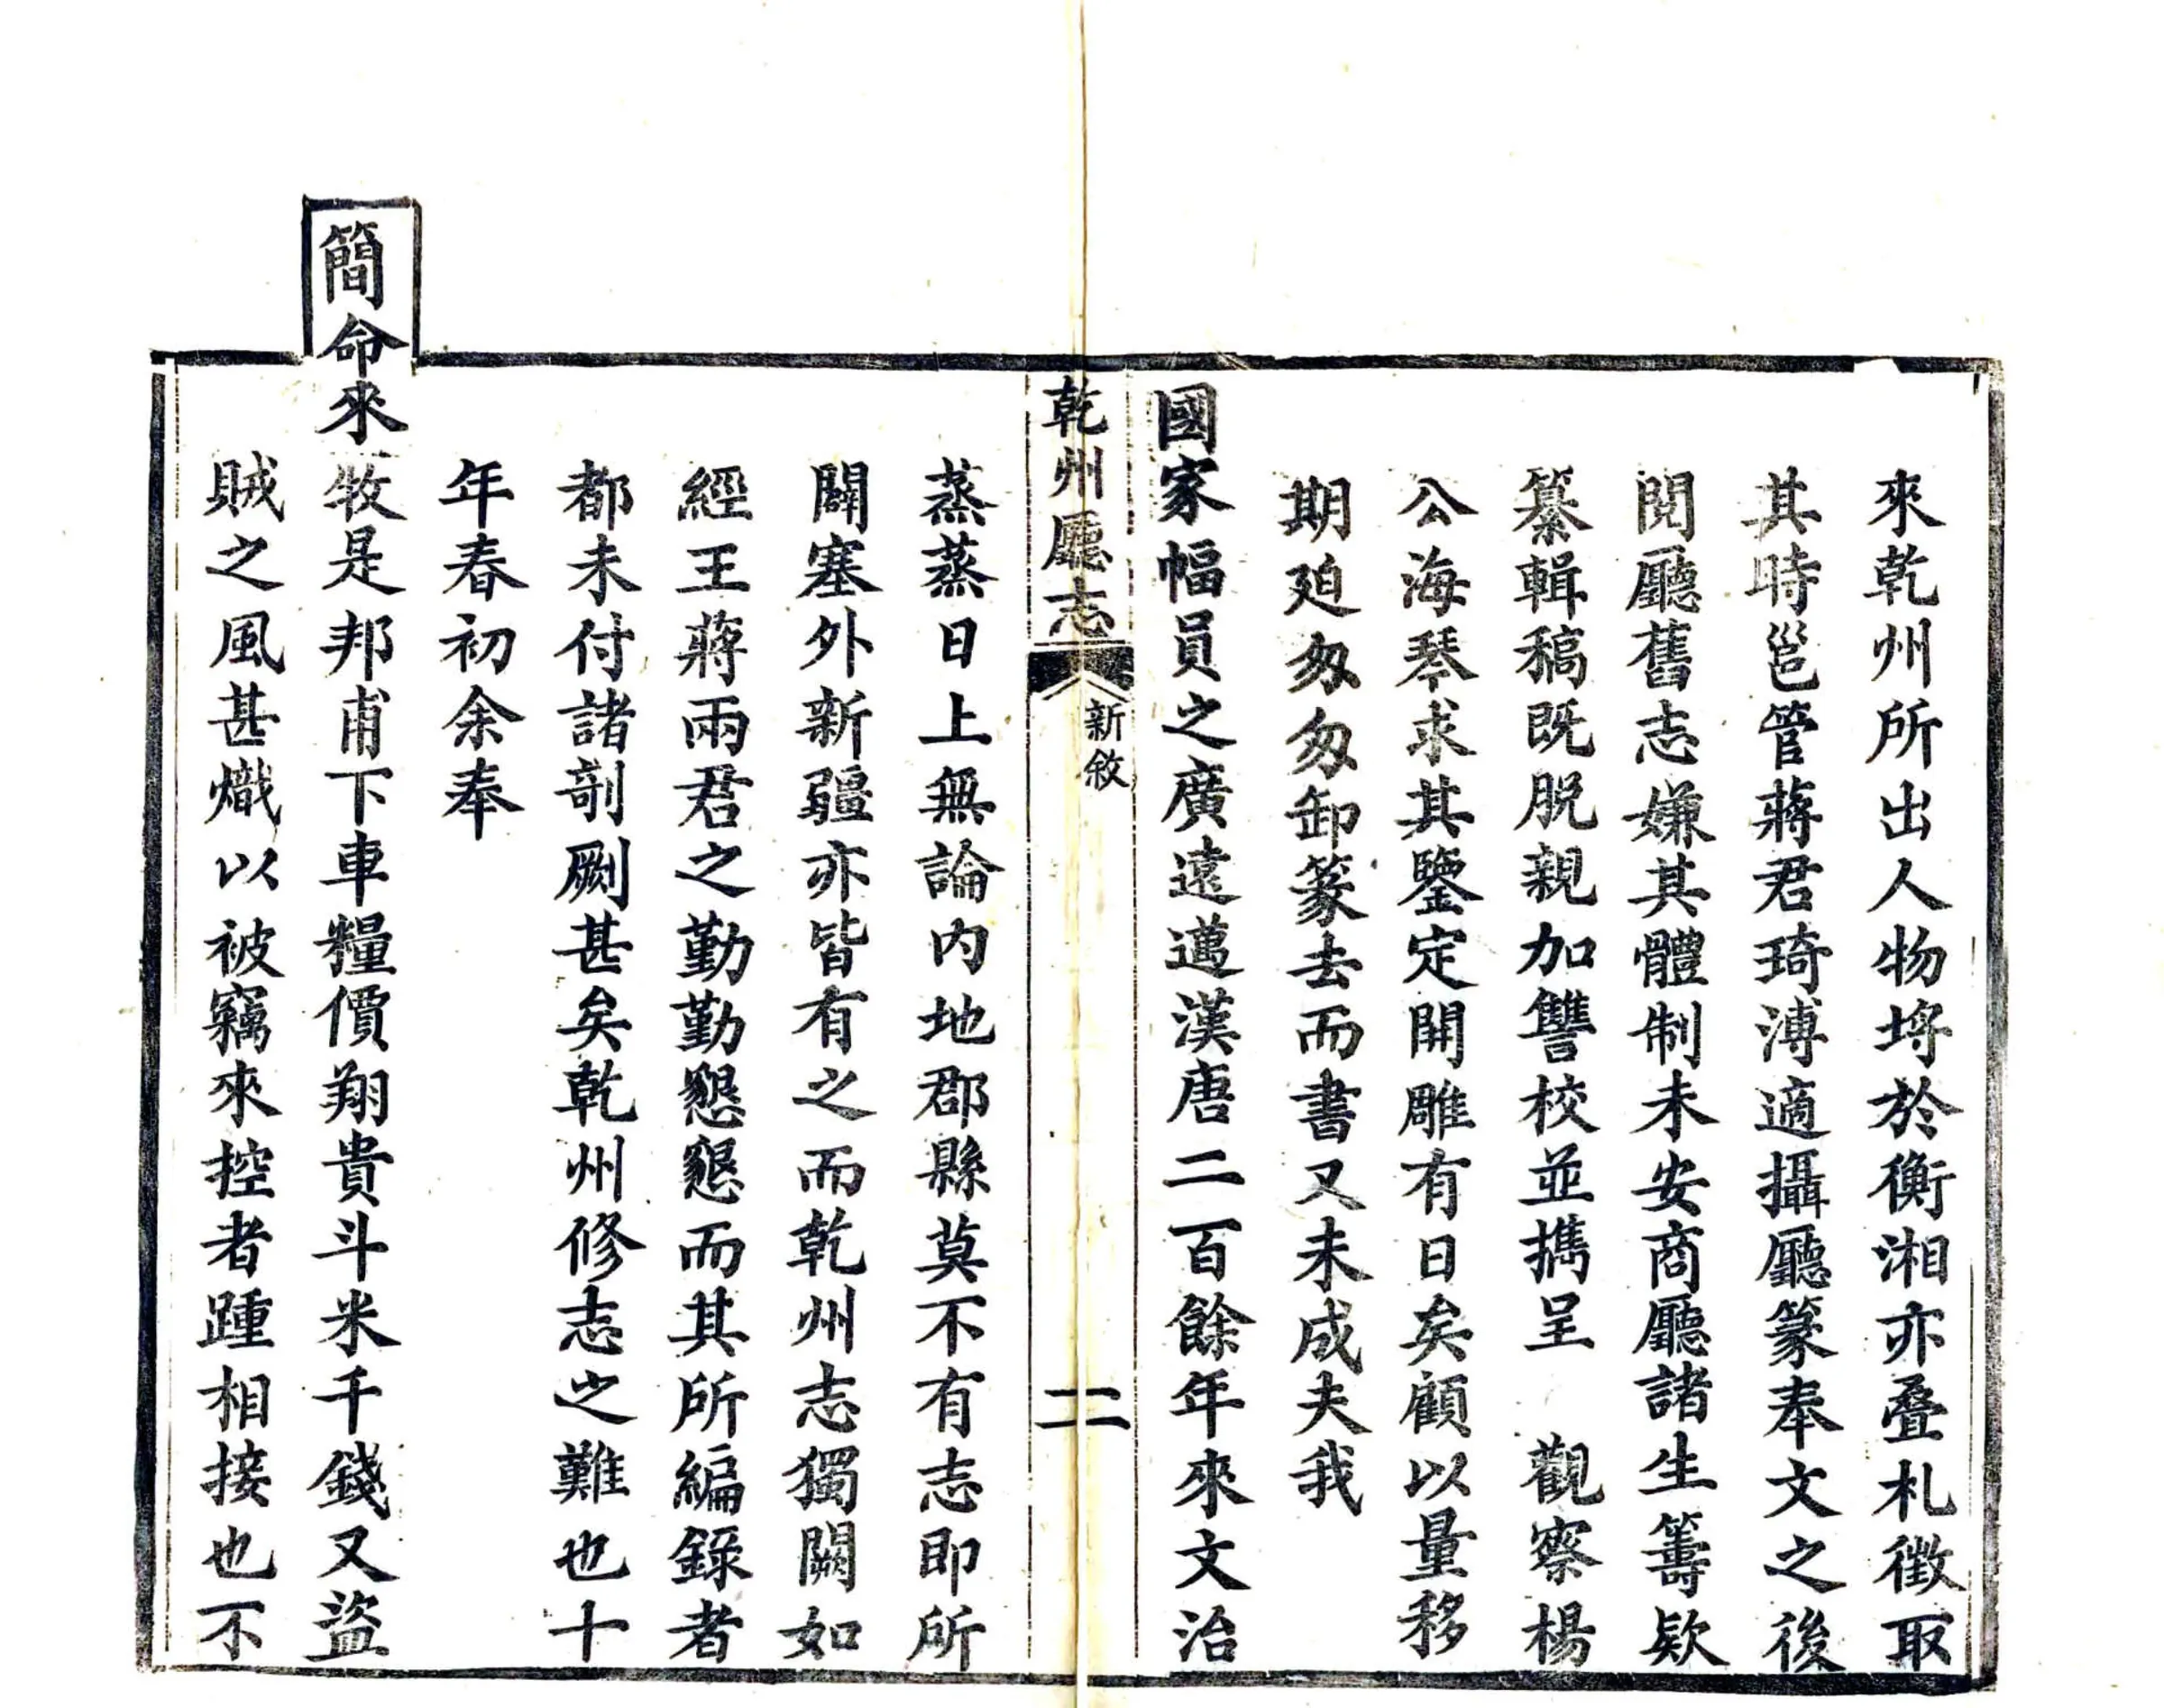 來乾州所出人物埒於衡湘亦叠札徵取
其時邕管蔣君琦溥適攝廳篆奉文之後
閱廳舊志嫌其體制未安商廳諸生籌欵
纂輯稿既脱親加讐校並攜呈　觀察楊
公海琴求其鑒定開雕有日矣顧以量移
期廹匆匆卸篆去而書又未成夫我
國家幅員之廣遠邁漢唐二百餘年來文治
乾州廳志
新敘
二
蒸蒸日上無論内地郡縣莫不有志即所
闢塞外新疆亦皆有之而乾州志獨闕如
經王蔣兩君之勤勤懇懇而其所編錄者
都未付諸剞劂甚矣乾州修志之難也十
年春初余奉
簡命來牧是邦甫下車糧價翔貴斗米千錢又盜
賊之風甚熾以被竊來控者踵相接也不